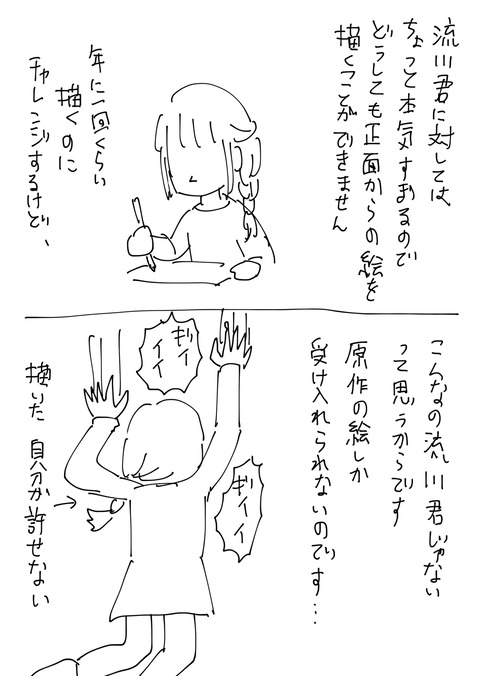 流川君に対しては
ちょっと本気すぎるので
どうしても正面からの絵を
描くことができません
年に一回くらい
描くのに
チャレンジするけど、
こんなの流川君じゃない
って思うからです
原作の絵しか
受け入れられないのです…
ギィ
イイ
ギィイイ
描いた自分が許せない